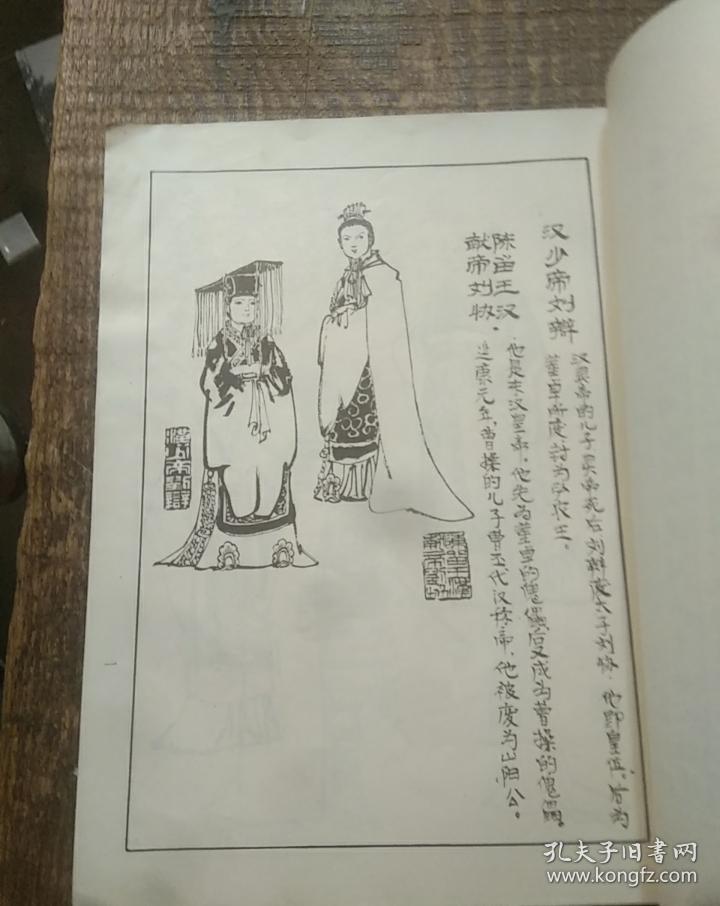 汉少帝刘辩
汉灵帝的儿子灵帝死后刘辩废太子刘协，他即皇位。后为
董卓所废，封为弘农王。
陈留王汉
献帝刘协。
他是末汉皇帝，他先为董卓的傀儡后又成为曹操的傀儡。
延康元年，曹操的儿子曹丕代汉称帝，他被废为山阳公。
漢少帝劉辯
陳留王漢
献帝劉協
一
孔夫子旧书网
www.kongfz.com